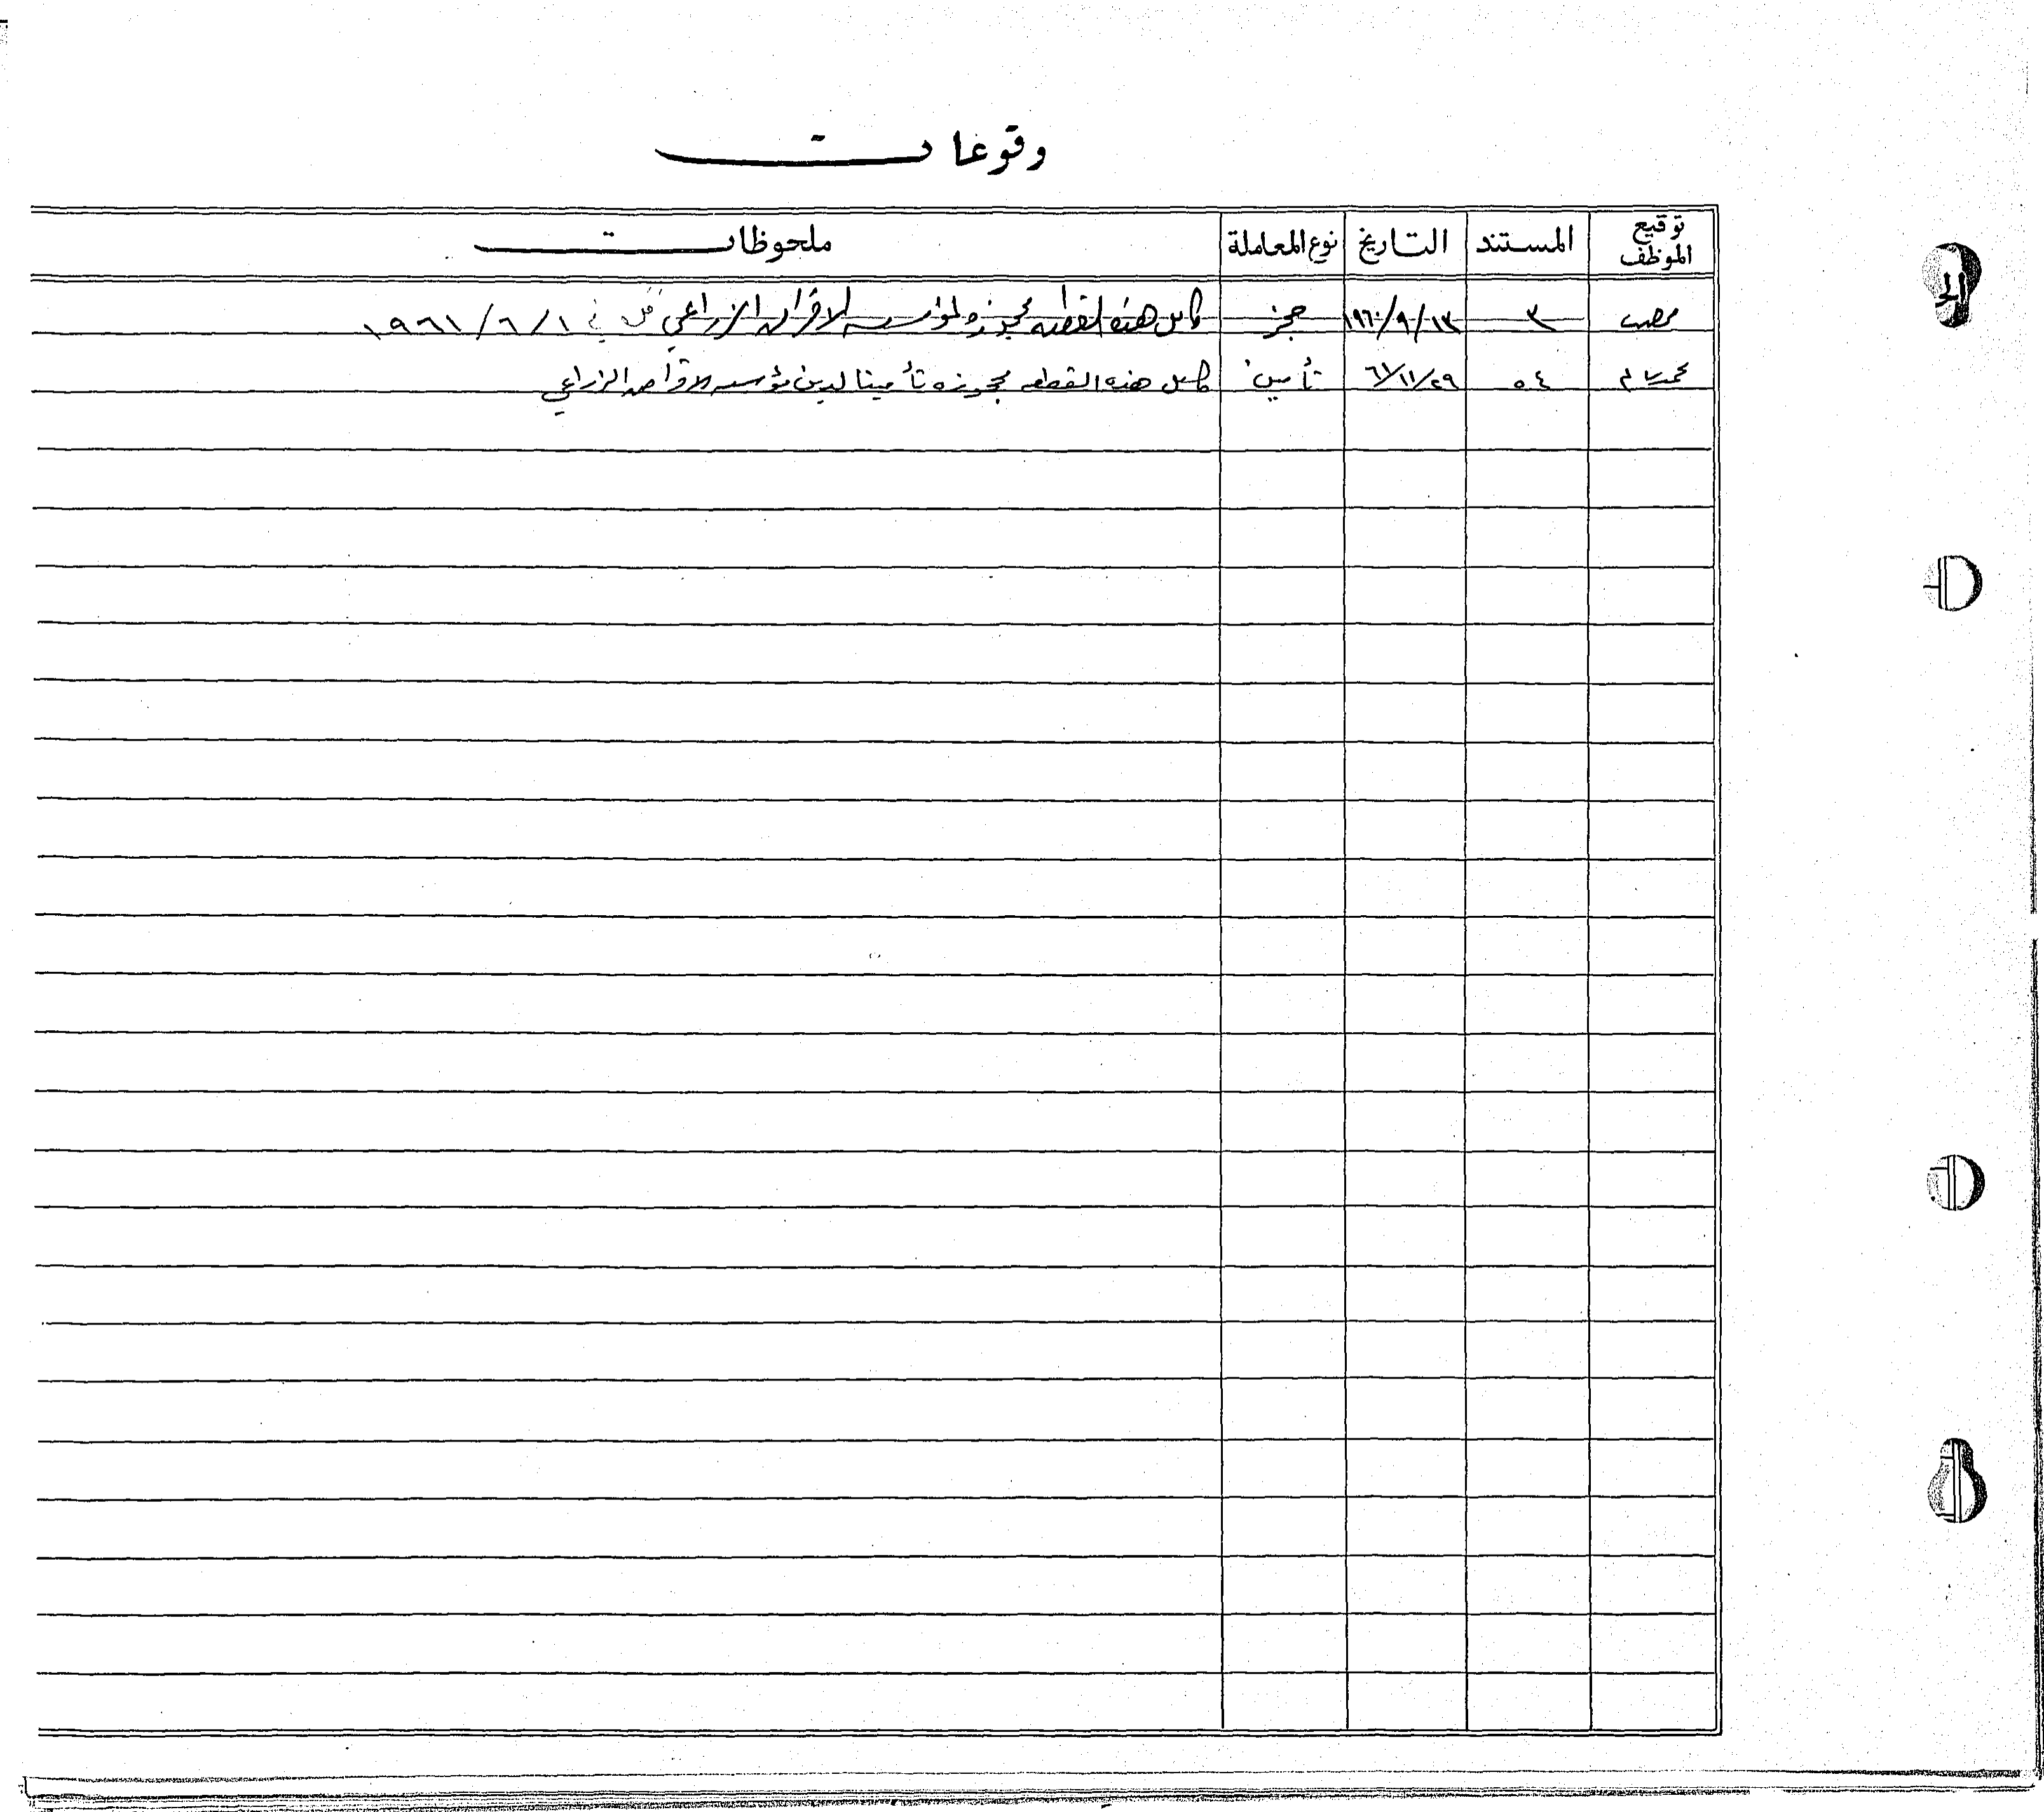 وقوعات
توقيع الموظف المستند التاريخ نوع المعاملة ملحوظات
٣ ١٩٦٠/٩/١٣ حجز كامل هذه القطعه محجوزه لمؤسسه الاقراض الزراعي فك في ١٩٦١/٦/١
محمد سالم ٥٤ ٦١/١١/٢٩ تأمين كامل هذه القطعه محجوزه تأمينا لدين مؤسسه الاقراض الزراعي